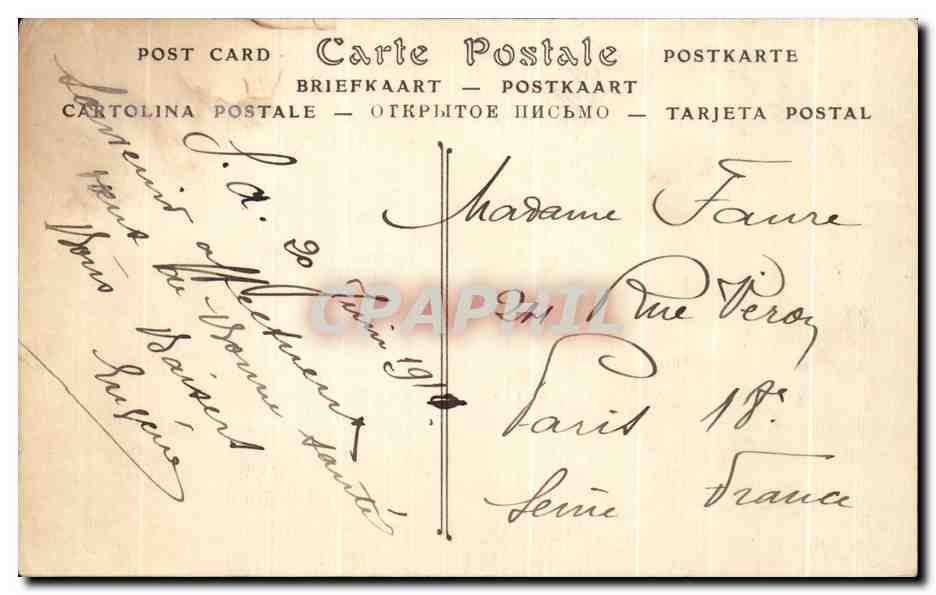 POST CARD Carte Postale POSTKARTE
BRIEFKAART — POSTKAART
CARTOLINA POSTALE — ОТКРЫТОЕ ПИСЬМО — TARJETA POSTAL
S. A. 20 Juin 191
Souvenir affectueux
de Bonne santé
Bons Baisers
Eugénie
Madame Faure
21 Rue Véron
Paris 18e
Seine France
CPAPHIL